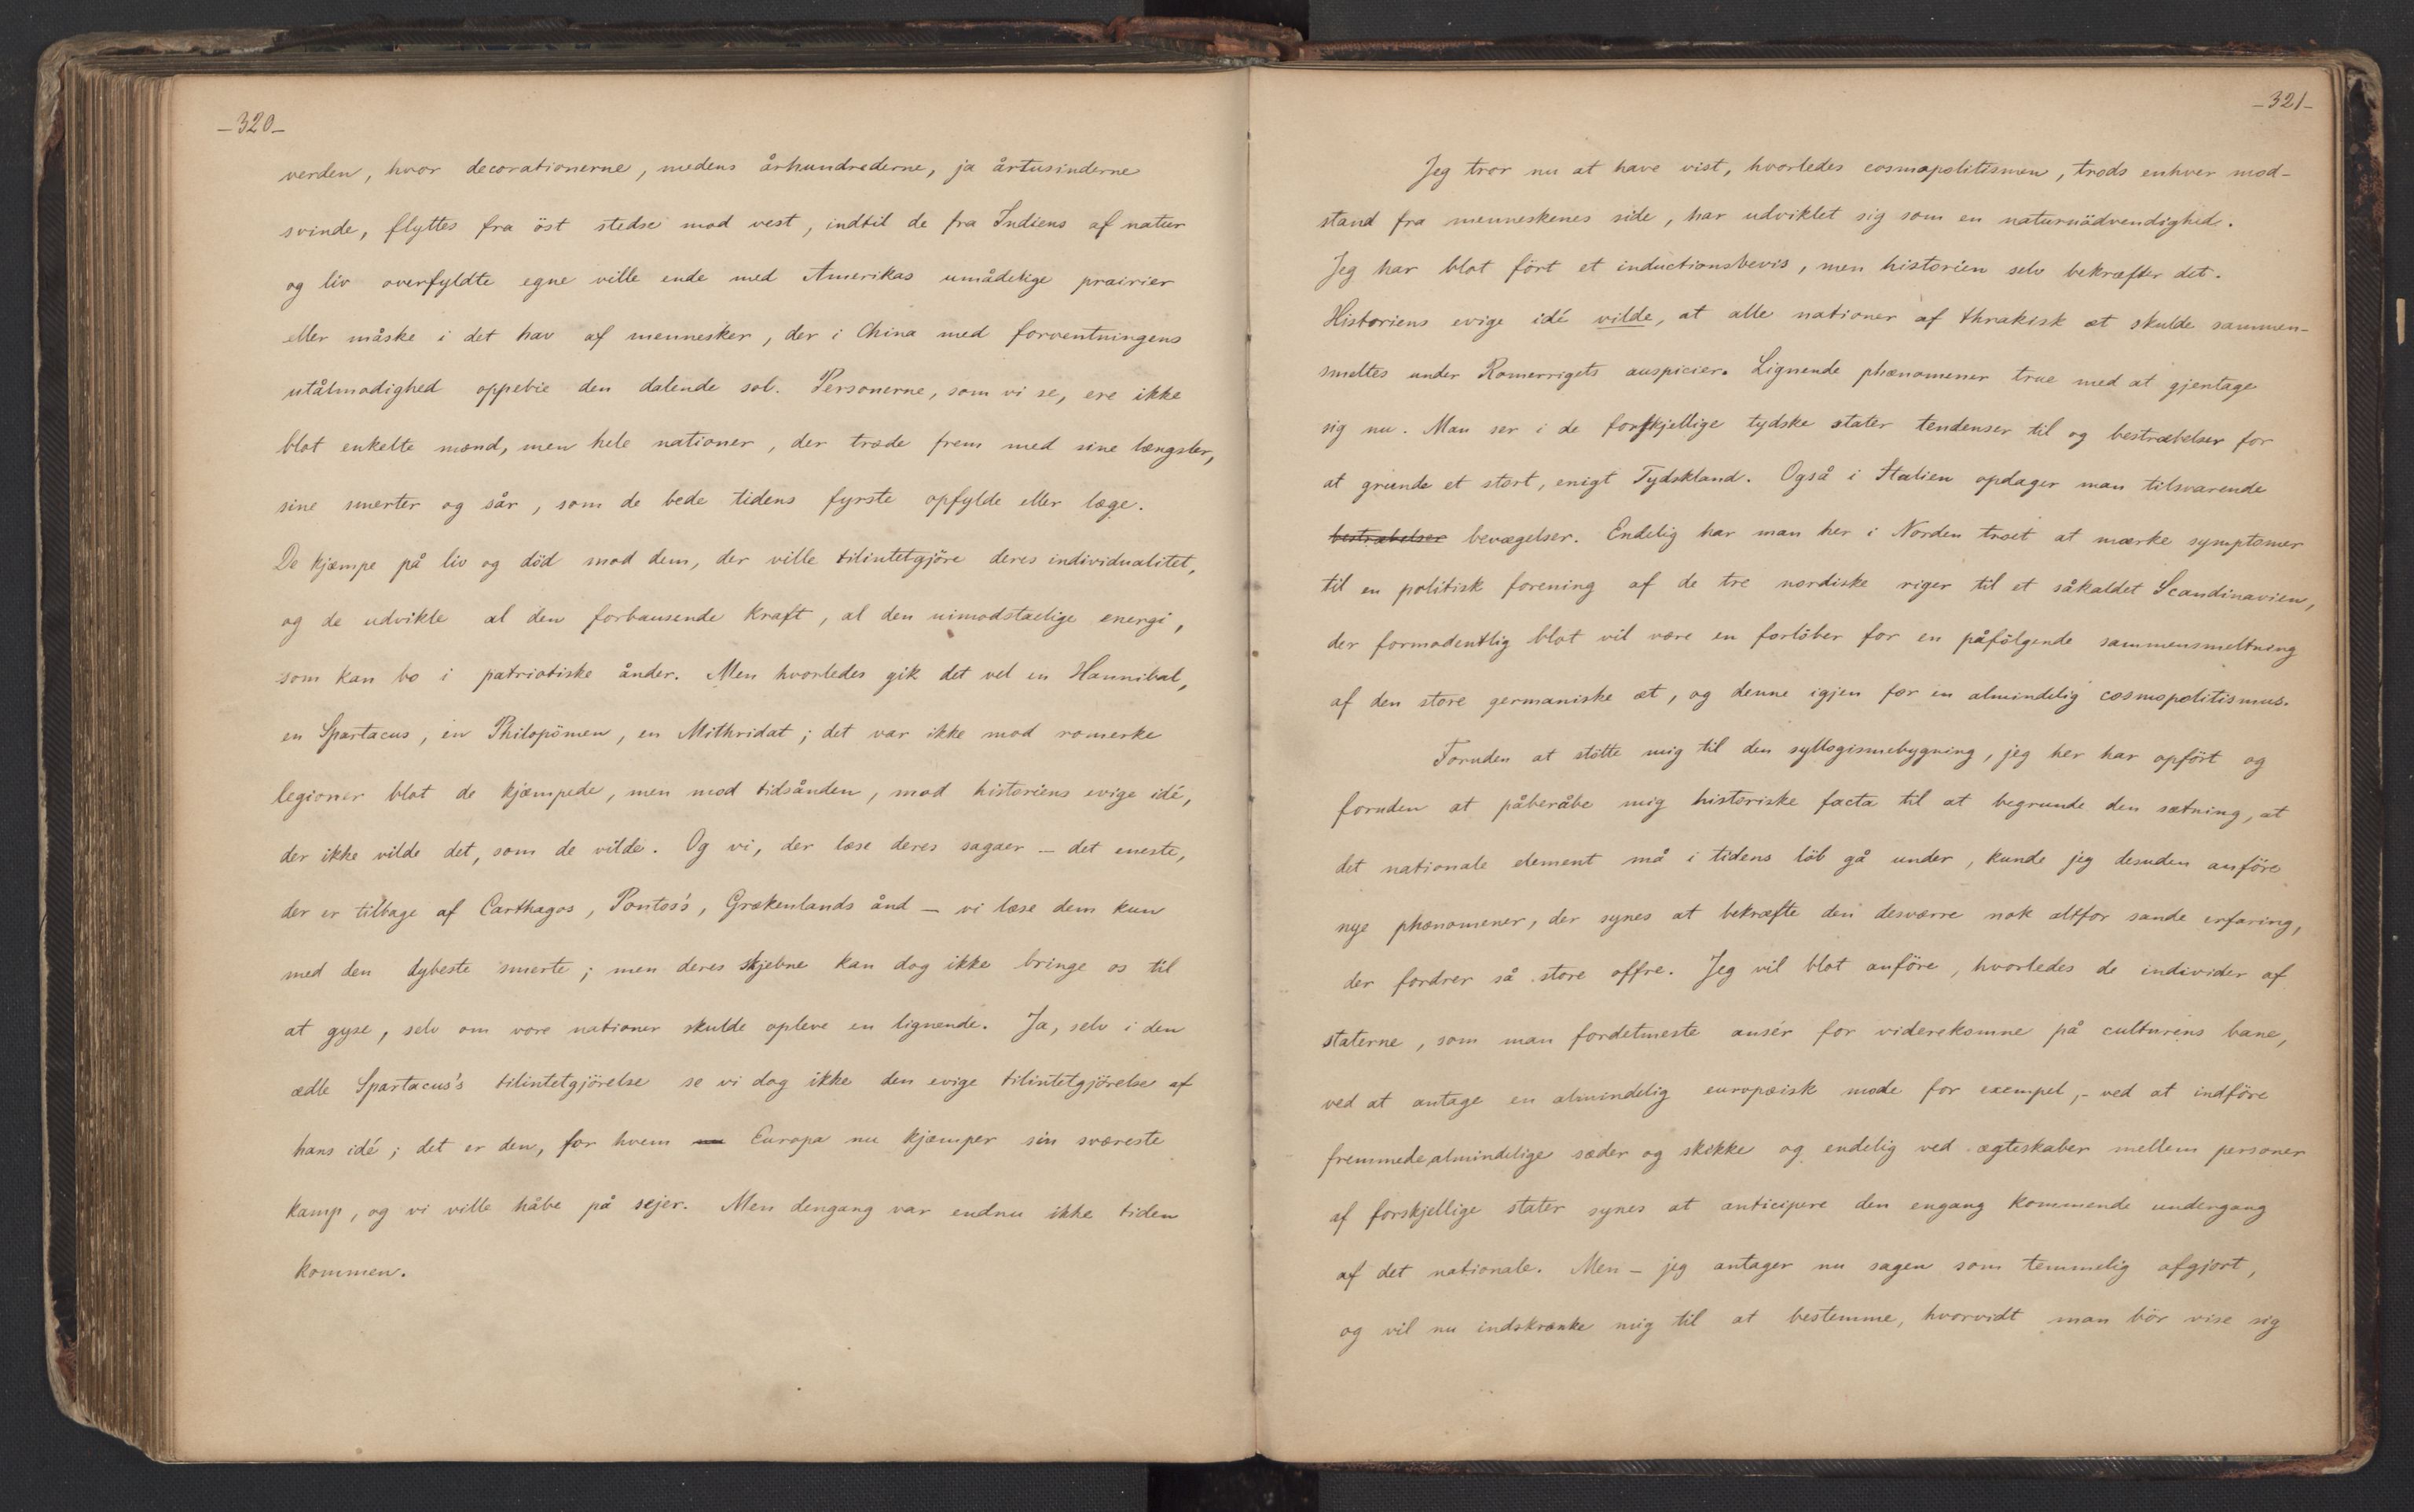 -320-
verden, hvor decorationerne, medens århundrederne, ja årtusinderne
svinde, flyttes fra öst stedse mod vest, indtil de fra Indiens af natur
og liv overfyldte egne ville ende med Amerikas umådelige prairier
eller måske i det hav af mennesker, der i China med forventningens
utålmodighed oppebie den dalende sol. Personerne, som vi se, ere ikke
blot enkelte mænd, men hele nationer, der træde frem med sine længsler,
sine smerter og sår, som de bede tidens fyrste opfylde eller læge.
De kjæmpe på liv og död mod dem, der ville tilintetgjöre deres individualitet,
og de udvikle al den forbausende kraft, al den uimodstaelige energi,
som kan bo i patriotiske ånder. Men hvorledes gik det vel en Hannibal,
en Spartacus, en Philopömen, en Mithridat; det var ikke mod romerke
legioner blot de kjæmpede, men mod tidsånden, mod historiens evige idé,
der ikke vilde det, som de vilde. Og vi, der læse deres sagaer – det eneste,
der er tilbage af Carthagos, Pontos's, Grækenlands ånd – vi læse dem kun
med den dybeste smerte; men deres skjebne kan dog ikke bringe os til
at gyse, selv om vore nationer skulde opleve en lignende. Ja, selv i den
ædle Spartacus's tilintetgjörelse se vi dog ikke den evige tilintetgjörelse af
hans idé; det er den, for hvem nu Europa nu kjæmper sin sværeste
kamp, og vi ville håbe på sejer. Men dengang var endnu ikke tiden
kommen.
-321-
Jeg tror nu at have vist, hvorledes cosmopolitismen, trods enhver mod-
stand fra menneskenes side, har udviklet sig som en naturnödvendighed.
Jeg har blot fört et inductionsbevis, men historien selv bekræfter det.
Historiens evige idé vilde, at alle nationer af thrakisk æt skulde sammen-
smeltes under Romerrigets auspicier. Lignende phænomener true med at gjentage
sig nu. Man ser i de forskjellige tydske stater tendenser til og bestræbelser for
at grunde et stort, enigt Tydskland. Også i Italien opdager man tilsvarende
bestræbelser bevægelser. Endelig har man her i Norden troet at mærke symptomer
til en politisk forening af de tre nordiske riger til et såkaldet Scandinavien,
der formodentlig blot vil være en forlöber for en påfölgende sammensmeltning
af den store germaniske æt, og denne igjen for en almindelig cosmopolitismus.
Foruden at stötte mig til den syllogismebygning, jeg her har opfört og
foruden at påberåbe mig historiske facta til at begrunde den sætning, at
det nationale element må i tidens löb gå under, kunde jeg desuden anföre
nye phænomener, der synes at bekræfte den desværre nok altfor sande erfaring,
der fordrer så store offre. Jeg vil blot anföre, hvorledes de individer af
staterne, som man fordetmeste ansér for viderekomne på culturens bane,
ved at antage en almindelig europæisk mode for exempel, – ved at indföre
fremmede, almindelige sæder og skikke og endelig ved ægteskaber mellem personer
af forskjellige stater synes at anticipere den engang kommende undergang
af det nationale. Men – jeg antager nu sagen som temmelig afgjort,
og vil nu indskrænke mig til at bestemme, hvorvidt man bör vise sig